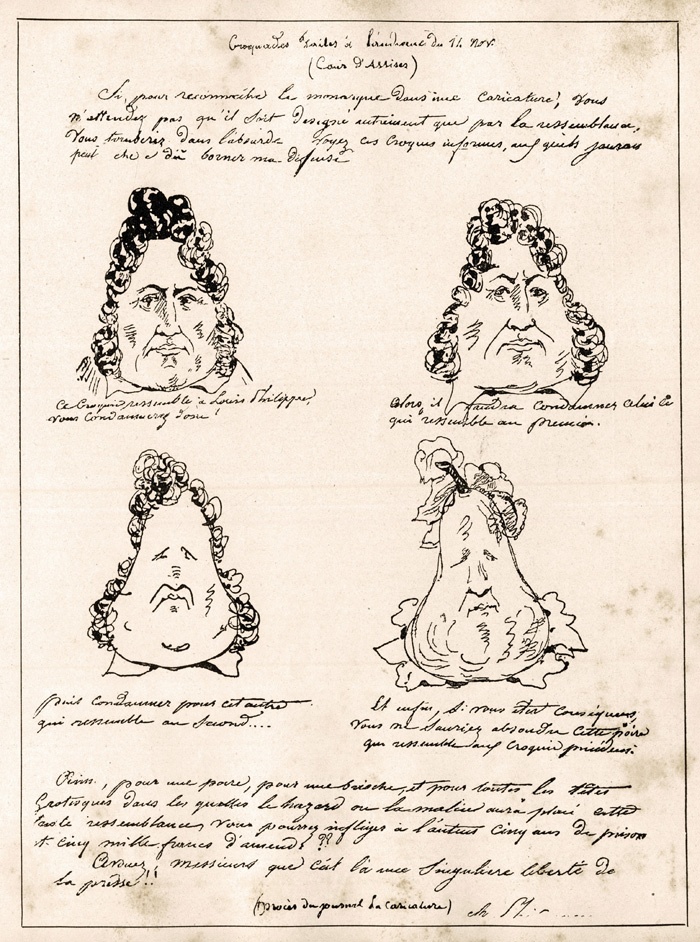 Croquades faites à l'audience du 14 Nov.
(Cour d'Assises)
Si, pour reconnaître le monarque dans une caricature, vous
n'attendez pas qu'il soit designé autrement que par la ressemblance,
Vous tomberez dans l'absurde Voyez ces croquis informes, auxquels j'aurais
peut être dû borner ma défense
Ce Croquis ressemble à Louis Philippe,
vous Condamnerez donc!
Alors il faudra Condamner celui ci
qui ressemble au premier.
puis condamner pour cet autre
qui ressemble au Second....
Et enfin, Si vous êtes conséquens,
Vous ne Sauriez absoudre cette poire
qui ressemble aux Croquis précédens.
Ainsi, pour une poire, pour une brioche, et pour toutes les têtes
Grotesques dans les quelles le hazard ou la malice aura placé cette
triste ressemblance, Vous pourrez infliger à l'auteur Cinq ans de prison
et Cinq mille francs d'amende ??
Avouez, messieurs que c'est là une Singuliere liberté de
la presse!!
(procès du journal la Caricature) ch